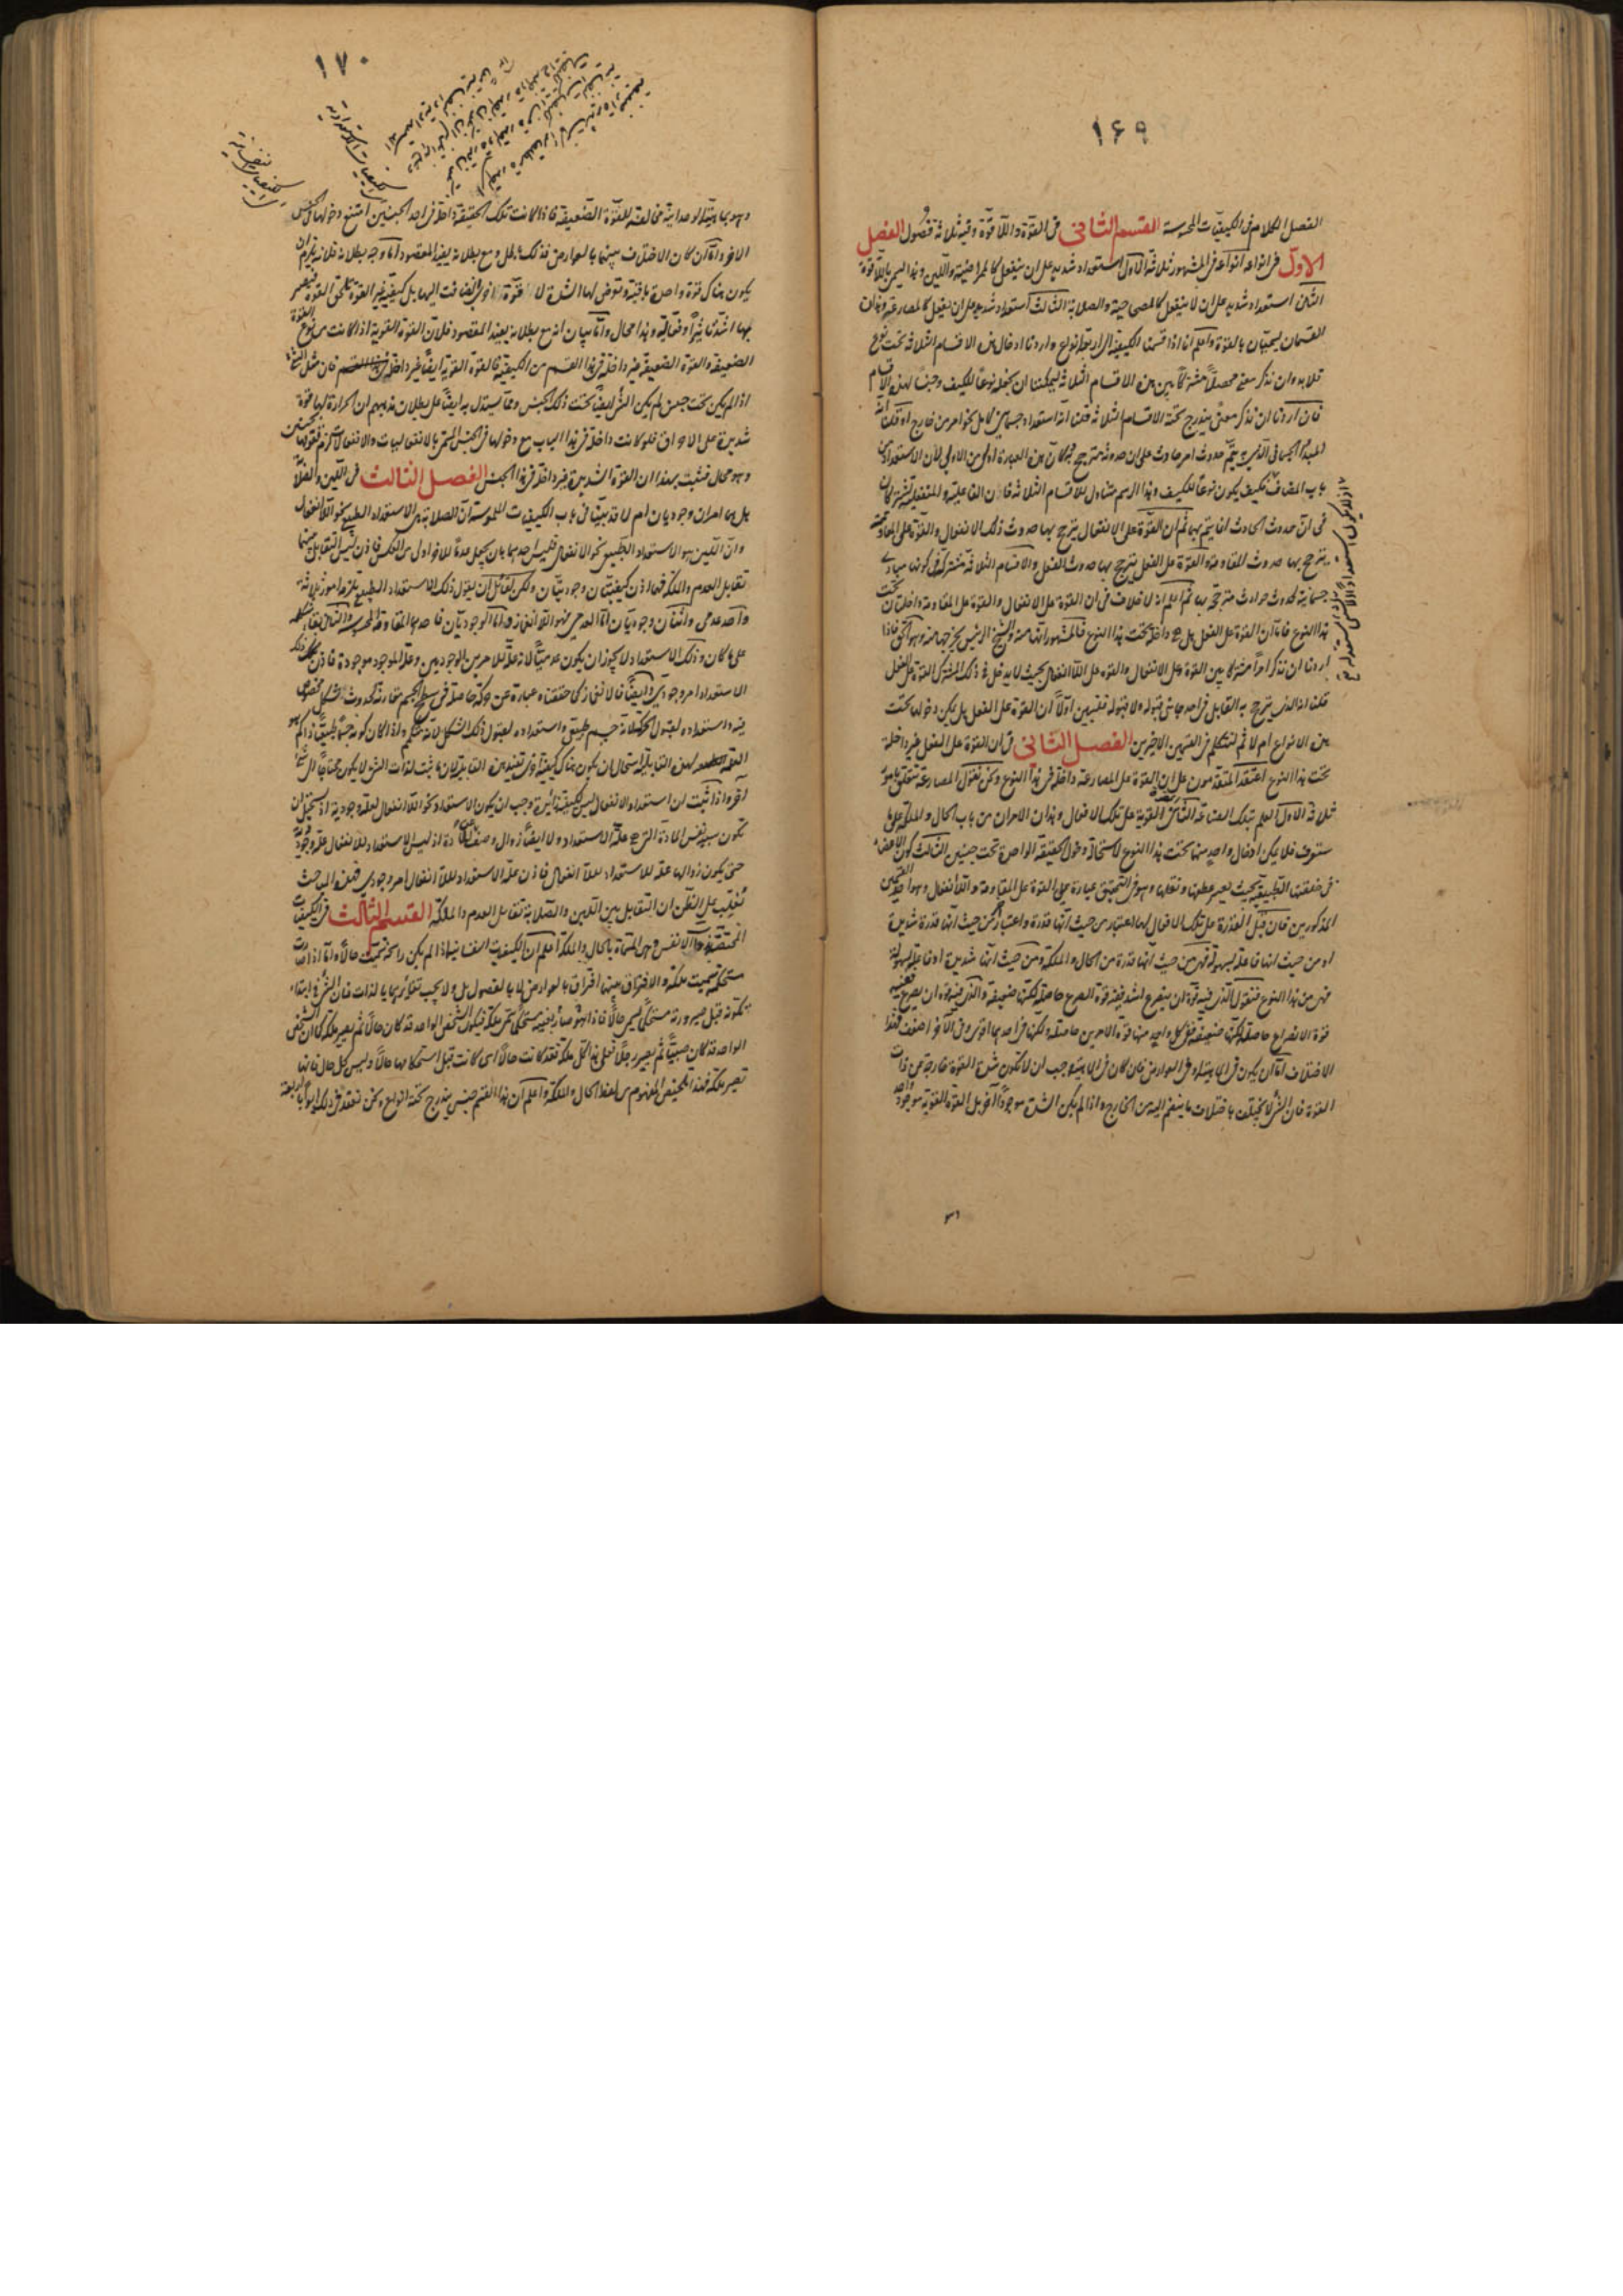 ١٦٩
الفصل الكلام فى الكيفيّات المحسوسة القسم الثانى فى القوّة واللاقوّة وفيه ثلاثة فصول الفصل
الاوّل فى انواعه انواعه فى المشهور ثلاثة الاوّل استعداد شديد على ان ينفعل كالممراضية واللين وهذا يسمى باللاقوّة
الثانى استعداد شديد على ان لا ينفعل كالمصحاحية والصلابة الثالث استعداد شديد على ان يفعل كالمصارعة وهذان
القسمان يسمّيان بالقوّة واعلم انا اذا قسمنا الكيفية الى اربعة انواع واردنا ادخال هذه الاقسام الثلاثة تحت نوع
فلا بد وان نذكر معنى محصلاً مشتركاً بين هذه الاقسام الثلاثة ليمكننا ان نجعله نوعاً للكيف وجنساً لهذه الاقسام
فان اردنا ان نذكر معنىً يندرج تحته الاقسام الثلاثة قلنا انه استعداد جسمانى كامل نحو امر من خارج او قلنا انه
المبدأ الجسمانى الذى به يتمّ حدوث امر حادث على ان حدوثه مترجح به وكأنّ هذه العبارة اولى من الاولى لانّ الاستعداد من
باب المضاف فكيف يكون نوعاً للكيف وهذا الرسم متناول للاقسام الثلاثة فان الفاعلية والمنفعلية تشتركان
فى انّ حدوث الحادث انما يتم بهما ثم ان القوّة على الانفعال يترجح بها حدوث ذلك الانفعال والقوّة على المقاومة
يترجح بها حدوث المقاومة والقوّة على الفعل يترجح بها حدوث الفعل والاقسام الثلاثة مشتركة فى كونها مبادى
جسمانية لحدوث حوادث مترجحة بها ثم اعلم انه لا خلاف فى ان القوة على الانفعال والقوة على المقاومة داخلتان تحت
هذا النوع فاما ان القوة على الفعل هل هى داخلة تحت هذا النوع فالمشهور انها منه والشيخ الرئيس يخرجها منه وهو الحق فاذا
اردنا ان نذكر امراً مشتركاً بين القوة على الانفعال والقوة على اللاانفعال بحيث لا يدخل فى ذلك المشترك القوة على الفعل
قلنا انه الذى يترجح به القابل فى احد جانبى قبوله ولا قبوله فلنبين اولاً ان القوة على الفعل هل يمكن دخولها تحت
هذه الانواع ام لا ثم لنتكلم فى القسمين الاخيرين الفصل الثانى فى ان القوة على الفعل غير داخلة
تحت هذا النوع اعتقد المتقدمون على ان القوة على المصارعة داخلة فى هذا النوع ونحن نقول المصارعة تتعلق بامور
ثلاثة الاول العلم بتلك الصناعة الثانى القوية على تلك الافعال وهذان الامران من باب الحال والملكة على ما
ستعرف فلا يمكن ادخال واحد منهما تحت هذا النوع لاستحالة دخول الحقيقة الواحدة تحت جنسين الثالث كون الاعضاء
فى خلقتها الطبيعية بحيث يعسر عطفها ونقلها وهو فى التحقيق عبارة عن القوة على المقاومة واللاانفعال وهو احد القسمين
المذكورين فان قيل القدرة على تلك الافعال لها اعتبار من حيث انها قدرة واعتبار من حيث انها قدرة شديدة
او من حيث انها فاعلة بسهولة فهى من حيث انها قدرة من الحال والملكة ومن حيث انها شديدة او فاعلة بسهولة
فهى من هذا النوع فنقول الذى فيه قوّة ان يصرع اشد ففيه قوة الصرع حاصلة لكنها ضعيفة والذى فيه قوة ان يصرع ففيه
قوة الانصراع حاصلة لكنها ضعيفة ففى كل واحد منهما قوة الامرين حاصلة لكنها فى احدهما اقوى وفى الآخر اضعف فهذا
الاختلاف امّا ان يكون فى الماهية او فى العوارض فان كان فى الماهية وجب ان لا تكون شدة القوة خارجة عن ذات
القوة فان الشى لا يختلف باختلاف ما ينضم اليه من الخارج واذا لم يكن الشدة موجوداً آخر بل القوة القوية موجود واحد
١٧٠
وهو بماهيته الوحدانية مخالفة للقوّة الضعيفة فاذا كانت تلك الحقيقة داخلة فى احد الجنسين امتنع دخولها فى الجنس
الآخر واما ان كان الاختلاف بينهما بالعوارض فذلك باطل ومع بطلانه يفيد المقصود اما وجه بطلانه فلانه يلزم ان
يكون هناك قوة واحدة باقية وتعرض لها الشدة لا قوة اخرى انضافت اليها بل كيفية غير القوة تلحق القوة فتصير
بها اشد تأثيراً وفعالية وهذا محال وامّا بيان انه مع بطلانه يفيد المقصود فلان القوة القوية اذا كانت من نوع القوة
الضعيفة والقوة الضعيفة غير داخلة فى هذا القسم من الكيفية فالقوة القوية ايضاً غير داخلة فان مثل الشئ
اذا لم يكن تحت جنس لم يكن الشئ ايضاً تحت ذلك الجنس ومما يستدل به ايضاً على بطلان مذهبهم ان الحرارة لها قوة
شديدة على الاحراق فلو كانت داخلة فى هذا الباب مع دخولها فى الجنس المسمى بالانفعاليات والانفعالات لزم تقومها بجنسين
وهو محال فثبت بهذا ان القوة الشديدة غير داخلة فى هذا الجنس الفصل الثالث فى اللين والصلابة
هل هما امران وجوديان ام لا قد بيّنا فى باب الكيفيات الملموسة ان الصلابة هى الاستعداد الطبيعى نحو اللاانفعال
وانّ اللين هو الاستعداد الطبيعى نحو الانفعال فليس احدهما بان يجعل عدماً للآخر اولى من العكس فاذن ليس التقابل بينهما
تقابل العدم والملكة فهما اذن كيفيتان وجوديتان ولكن لقائل ان يقول ذلك الاستعداد الطبيعى تلزمه امور ثلاثة
واحد عدمى واثنان وجوديان امّا العدمى فهو اللاانغماز وامّا الوجوديان فاحدهما المقاومة المحسوسة والثانى بقاء شكله
على ما كان وذلك الاستعداد لا يجوز ان يكون عدميّاً لانه علّة للامرين الوجوديين وعلة الموجود موجودة فاذن ذلك
الاستعداد امر وجودى وايضاً فالانغماز كما حققناه عبارة عن حركة حاصلة فى سطح الجسم مقارنة لحدوث شكل مخصوص
فيه واستعداده لقبول الحركة لانه جسم طبيعى واستعداده لقبول ذلك الشكل لانه متكمم واذا كان كونه جسماً طبيعياً ذا كم هو
لهذه القابلية استحال ان يكون هناك كيفية اخرى تفيد هذه القابلية لان ما ثبت لذات الشئ لا يكون محتاجاً الى شئ
آخر واذا ثبت ان استعداد الانفعال ليس لكيفية زائدة وجب ان يكون الاستعداد نحو اللاانفعال لعلة وجودية اذ يستحيل ان
تكون سببه نفس المادة التى هى علة الاستعداد ولا ايضاً زوال وصف عن المادة اذ ليس الاستعداد للانفعال علة وجودية
حتى يكون زوالها علة للاستعداد للاانفعال فاذن علة الاستعداد للاانفعال امر وجودى فهذه المباحث
تُغلّب على الظن ان التقابل بين اللين والصلابة تقابل العدم والملكة القسم الثالث فى الكيفيات
المختصة بذوات الانفس وهى المسماة بالحال والملكة اعلم ان الكيفيات النفسانية اذا لم يكن راسخة سميت حالاً واما اذا صارت
مستحكمة سميت ملكة والافتراق بينهما افتراق بالعوارض لا بالفصول بل ولا يجب تغايرهما بالذات فان الشئ فى ابتداء
تكونه قبل صيرورته مستحكماً يسمى حالاً فاذا هو صار بعينه مستحكماً سمى ملكة فيكون الشخص الواحد قد كان حالاً ثم يصير ملكة كما ان الشخص
الواحد قد كان صبيّاً ثم يصير رجلاً فعلى هذا كل ملكة فقد كانت حالاً اى كانت قبل استحكامها حالاً وليس كل حال فانها
تصير ملكة فهذا تلخيص المفهوم من لفظ الحال والملكة واعلم ان هذا القسم جنس يندرج تحته انواع ونحن نعقد فى ذلك ابواباً اربعة